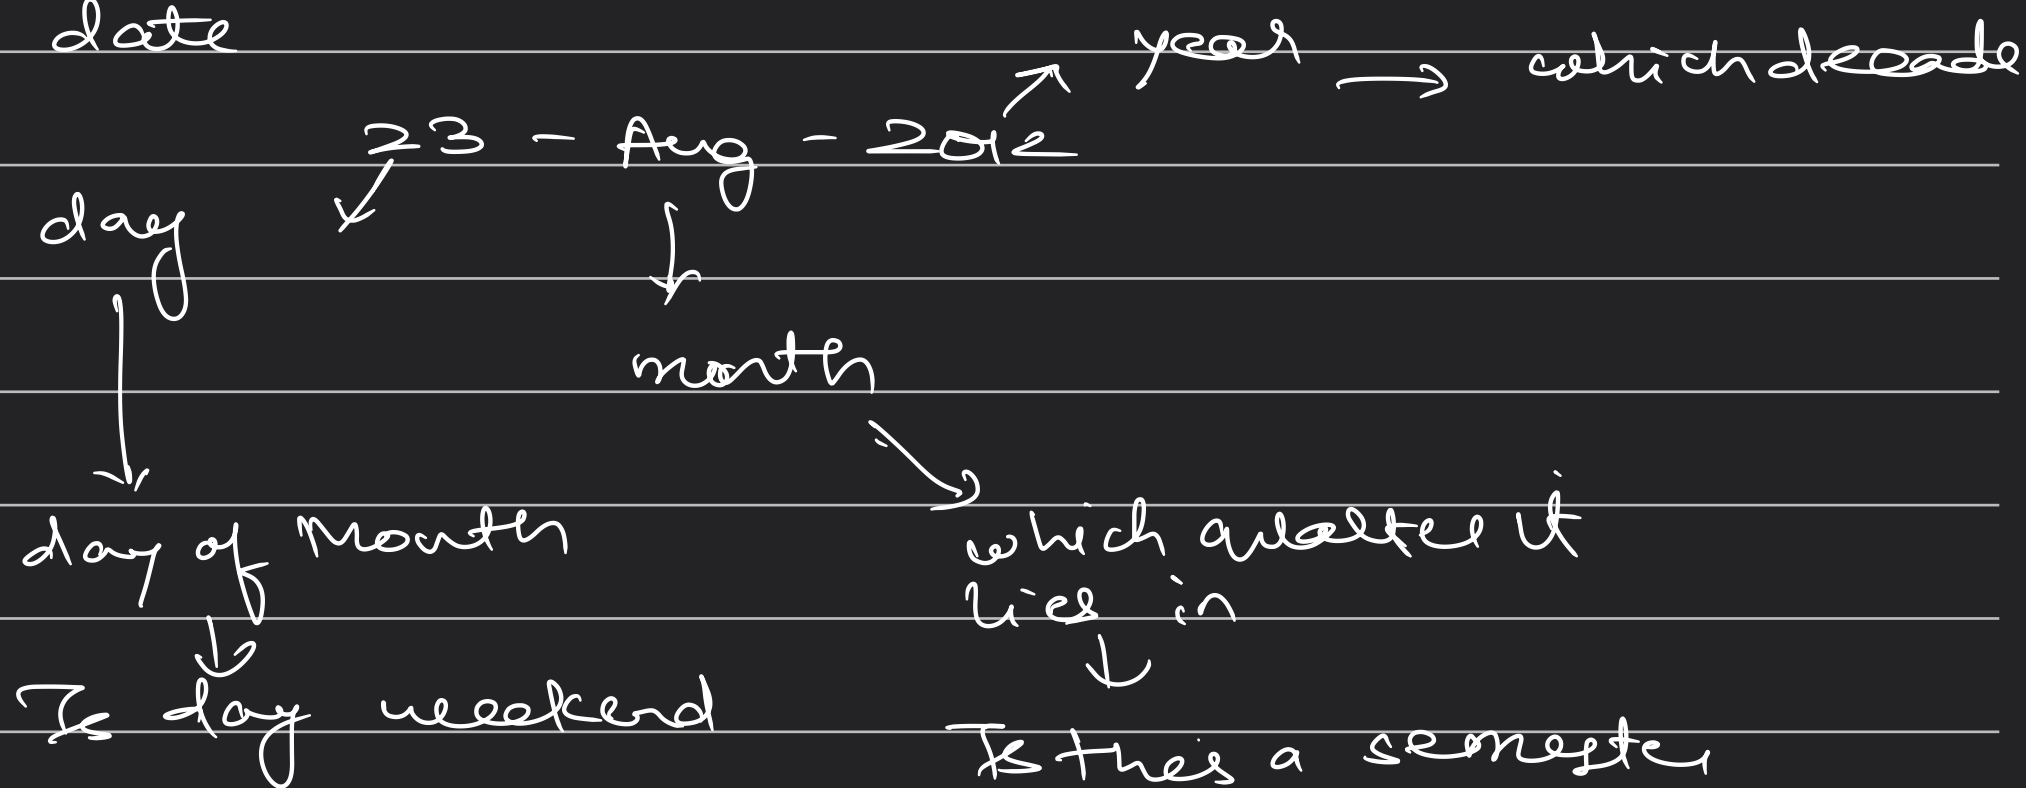 date
year → which decade
23 - Aug - 2012
day
month
day of Month
which quarter it
lies in
Is day weekend
Is this a semester